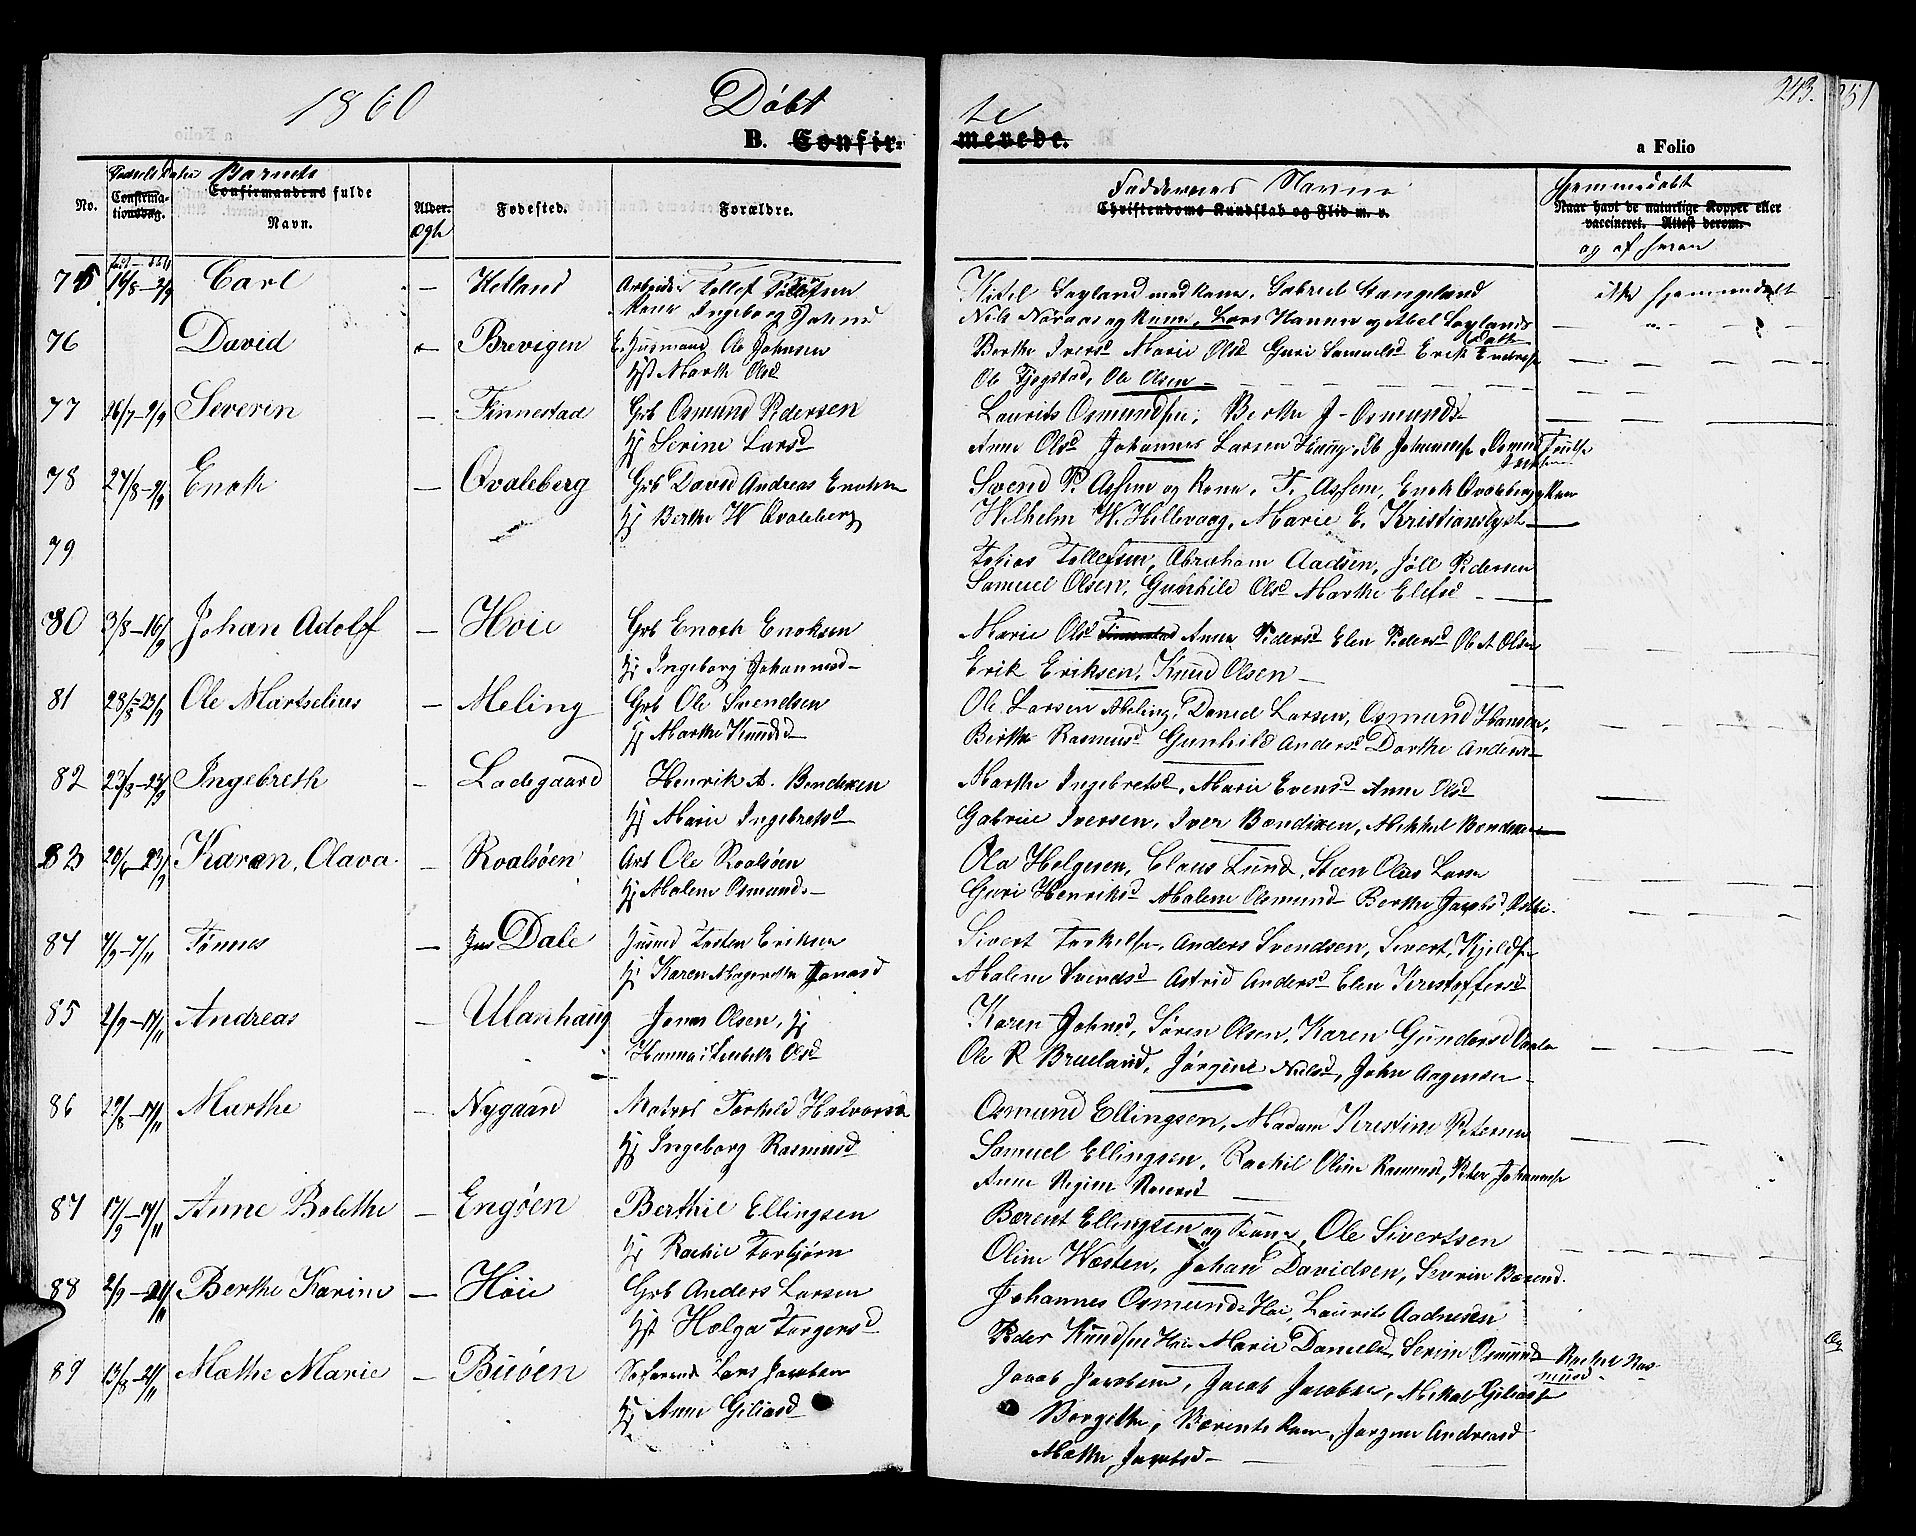 1860
Döbt
te
243.
251
B. Confir-
merede.
a Folio
No.
Fødsels Datum
Confirma-
tionsdag.
Barnets
Confirmandens fulde
Navn.
Alder.
Ægte
Fødested.
Forældre.
Faddernes Navne
Christendoms Kundskab og Flid m. v.
Hjemmedøbt
Naar havt de naturlige Kopper eller
vaccineret. Attest derom.
og af hvem
75 16/8 - 2/9 Carl — Hetland Arbeider Tollef Tollefsen
Kone Ingeborg Johns
Ketel Søyland med Kone, Gabriel Stangeland
Nils Noraas og Kone, Lars Hanne og Abel Søyland
ikke hjemmedøbt
76 David — Brevigen Husmand Ole Johnsen
Hst Marthe Olsd
Berthe Iversd Marie Olsd Guri Samuelsd Erik Endress
Ole Fjogstad, Ole Olsen —
77 16/7 - 9/9 Severin — Finnestad Grb Osmund Pedersen
Hj Serine Larsd
Laurits Osmundsen, Berthe J. Osmunds
Anne Olsd Johannes Larsen Haug, Ob Johannesse, Osmund
78 27/8 - 9/9 Enok — Qvaleberg Grb David Andreas Enoksen
Hj Berthe W Qvaleberg
Svend P. Assen og Kone, T. Assen, Enok Qvaleberg og Kone
Wilhelm W. Hillevaag, Marie E. Kristianslyst
79
Tobias Tollefsen, Abraham Aadsen, Jöll Pedersen
Samuel Olsen, Gunhild Olsd Marthe Elefsd —
80 3/8 - 16/9 Johan Adolf — Höie Grb Enoch Enoksen
Hj Ingeborg Johannesd
Marie Olsd Anne Pedersd Elen Pedersd Ole A Olsen
Erik Eriksen, Knud Olsen —
81 28/8 - 23/9 Ole Martselius — Meling Grb Ole Svendsen
Hj Marthe Knudsd
Ole Larsen Meling, Daned Larsen, Osmund Hansen,
Berthe Rasmusd Gunhild Andersd Dorthe Anders
82 23/8 - 23/9 Ingebreth — Ladegaard Henrik A. Bendixen
Hj Marie Ingebretsd
Marthe Ingebretsd, Marie Evensd Anne Olsd
Gabriel Iversen, Iver Bendixen, Mikkel Bendixen
83 20/6 - 23/9 Karen, Olava — Roalsöen Arb Ole Roalsöen
Hj Malene Osmunds
Ola Helgesen, Claus Lund, Steen Olus Larsen
Guri Henriksd Malene Osmund Berthe Jacobsd
84 4/9 - 7/11 Tönnes — Dale Husmd Torsten Eriksen
Hj Karen Margrethe Jonasd
Sivert Torkelse, Anders Svendsen, Sivert, Kjelds
Malene Svendsd Astrid Andersd Elen Kristoffersd
85 2/9 - 17/11 Andreas — Ulanhaug Jonas Olsen, Hj
Hanna Lisebeth Olsd
Karen Johnsd, Sören Olsen, Karen Gundersd
Ole R Brueland, Jörgine Nilsd, John Aagensen
86 29/8 - 17/11 Marthe — Nygaard Matros Torkeld Halvorsen
Hj Ingeborg Rasmusd
Osmund Ellingsen, Madam Kirstine Petersen
Samuel Ellingsen, Rachil Oline Rasmusd, Peter Johannesse
Anne Regine
87 17/9 - 17/11 Anne Bolethe — Engöen Berthil Ellingsen
Hj Rachel Torbjörn
Bærent Ellingsen og Kone, Ole Sivertsen
Oline Westen, Johan Davidsen, Sevrin Bærend.
88 2/9 - 21/11 Berthe Karine — Höie Grb Anders Larsen
Hst Helga Torgersd
Johannes Osmunds Höie, Laurits Aadnesen
Peder Knudsen Höie Marie Danielsd, Serine Osmund Rachel Ras-
musd
89 13/8 - 21/11 Mathe Marie — Buöen Søfarende Lars Jacobsen
Hj Anne Giliasd
Jacob Jacobsen, Jacob Jacobsen, Mikal Giliase
Borgithe, Bærents Kone, Jorgine Andreasd
Mathe, Jacobsd —